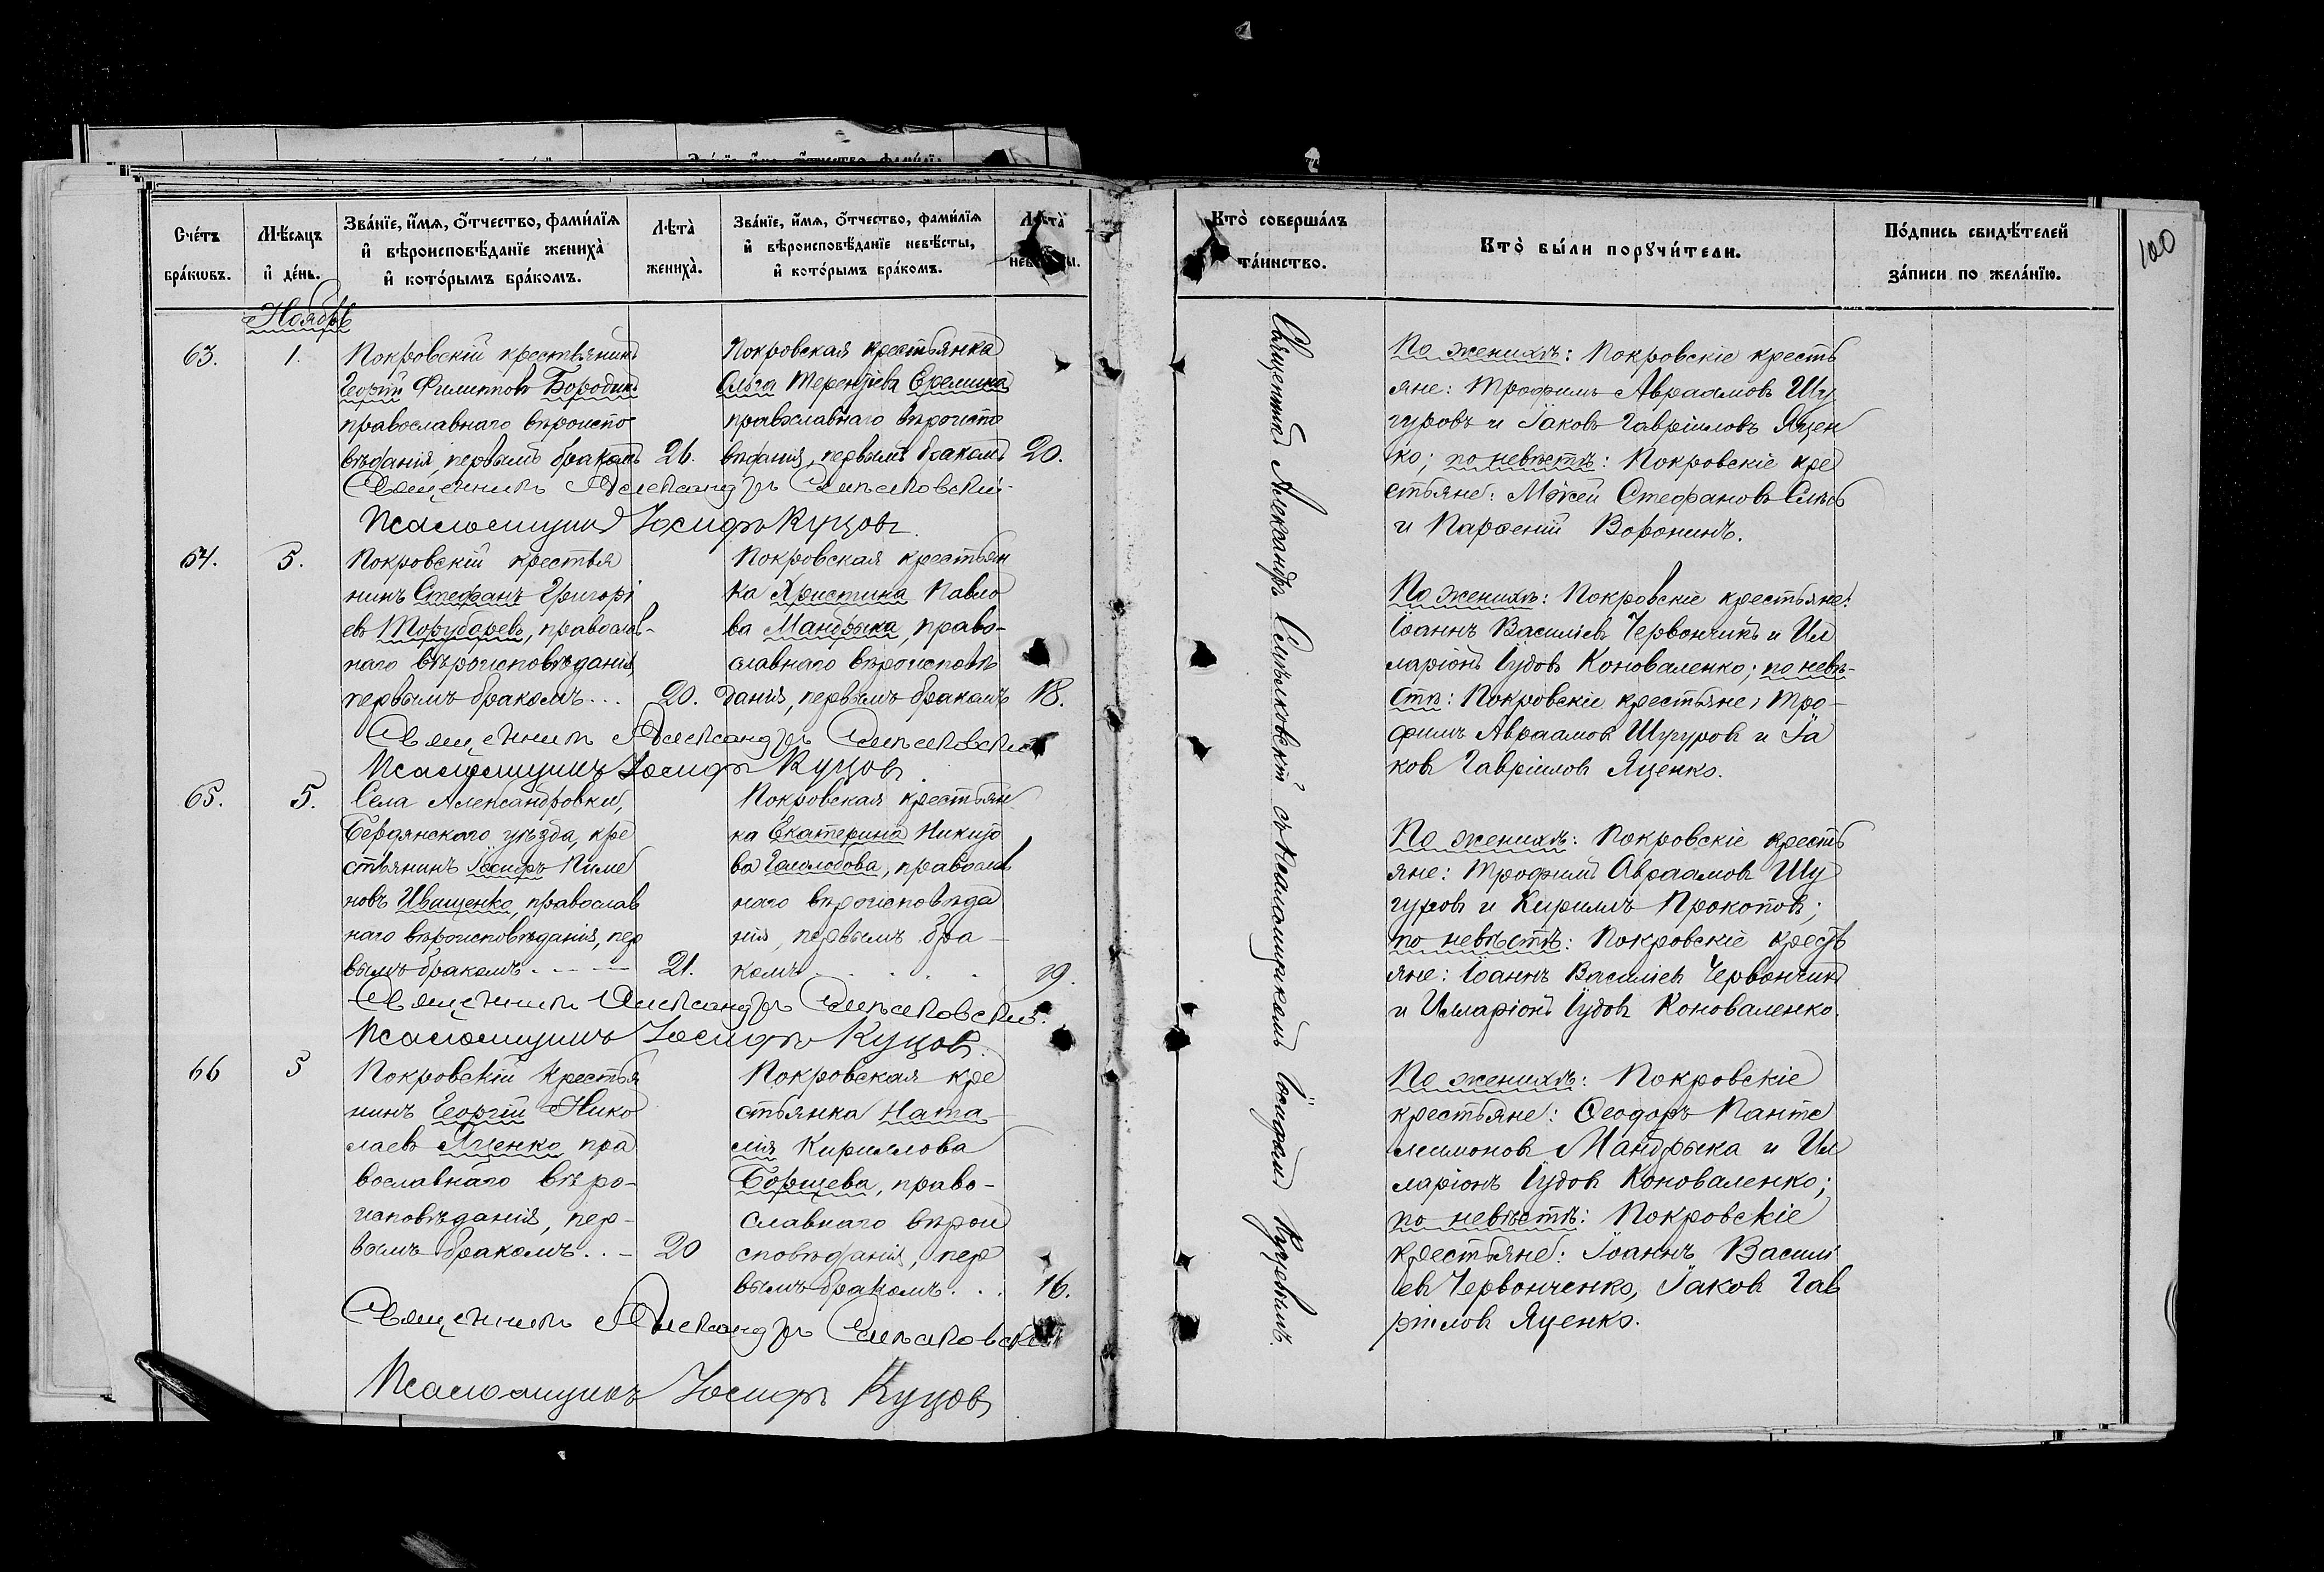 Счéтъ брáкωвъ.
Мѣ́сяцъ и҆ дéнь.
Звáнїе, и҆́мѧ, ѻ҆́тчество, фамѝлїѧ
и҆ вѣроисповѣ́данїе женихà
и҆ котóрымъ брáкомъ.
Лѣтà женихà.
Звáнїе, и҆́мѧ, ѻ҆́тчество, фамѝлїѧ
и҆ вѣроисповѣ́данїе невѣ́сты,
и҆ котóрымъ брáкомъ.
Лѣтà невѣсты.
Ноябрь
63.
1.
Покровскій крестьянинъ
Георгій Филипповъ Бородинъ
православнаго вѣроиспо
вѣданія, первымъ бракомъ
26.
Покровская крестьянка
Ольга Терентіева Еремина
православнаго вѣроиспо
вѣданія, первымъ бракомъ
20.
Священникъ Александръ Синьковскій
Псаломщикъ Іосифъ Куцовъ.
64.
5.
Покровскій крестья
нинъ Стефанъ Григорі
евъ Торубаревъ, православ-
наго вѣроисповѣданія,
первымъ бракомъ...
20.
Покровская крестьян
ка Христина Павло
ва Мандрыка, право-
славнаго вѣроисповѣ
данія, первымъ бракомъ
18.
Священникъ Александръ Синьковскій
Псаломщикъ Іосифъ Куцовъ.
65.
5.
Села Александровки,
Бердянскаго уѣзда, кре
стьянинъ Іосифъ Пиме
новъ Иващенко, православ
наго вѣроисповѣданія, пер
вымъ бракомъ
21.
Покровская крестьян
ка Екатерина
ва православ
наго вѣроисповѣда
нія, первымъ бра-
комъ
19.
Священникъ Александръ Синьковскій.
Псаломщикъ Іосифъ Куцовъ.
66
5
Покровскій крестья
нинъ Георгій Нико
лаевъ Яценко пра
вославнаго вѣро-
исповѣданія, пер-
вымъ бракомъ..-
20
Покровская кре
стьянка Ната-
лія Кириллова
Борщева, право-
славнаго вѣрои
сповѣданія, пер
вымъ бракомъ...
16.
Священникъ Александръ Синьковскій
Псаломщикъ Іосифъ Куцовъ
Ктò совершáлъ
тáинство.
Ктò бы́ли порꙋчи́тели.
Пóдпись свидѣ́телей
зáписи по желáнїю.
100
Священникъ Александръ Синьковскій съ псаломщикомъ Іосифомъ Куцовымъ.
По женихѣ: Покровскіе кресть
яне: Трофимъ Авраамовъ Шу
гуровъ и Іаковъ Гавріиловъ Яцен
ко; по невѣстѣ: Покровскіе кре
стьяне: Стефановъ
и Парѳеній Воронинъ.
По женихѣ: Покровскіе крестьяне:
Іоаннъ Василіевъ Червончикъ и Ил
ларіонъ Іудовъ Коноваленко; по невѣ-
стѣ: Покровскіе крестьяне: Тро-
фимъ Авраамовъ Шугуровъ и Іа
ковъ Гавріиловъ Яценко.
По женихѣ: Покровскіе кресть
яне: Трофимъ Авраамовъ Шу
гуровъ и Кириллъ Прокоповъ;
по невѣстѣ: Покровскіе кресть
яне: Іоаннъ Василіевъ Червончикъ
и Илларіонъ Іудовъ Коноваленко.
По женихѣ: Покровскіе
крестьяне: Ѳеодоръ Панте
леимоновъ Мандрыка и Ил
ларіонъ Іудовъ Коноваленко;
по невѣстѣ: Покровскіе
крестьяне: Іоаннъ Васили
евъ Червонченко, Іаковъ Гав
ріиловъ Яценко.